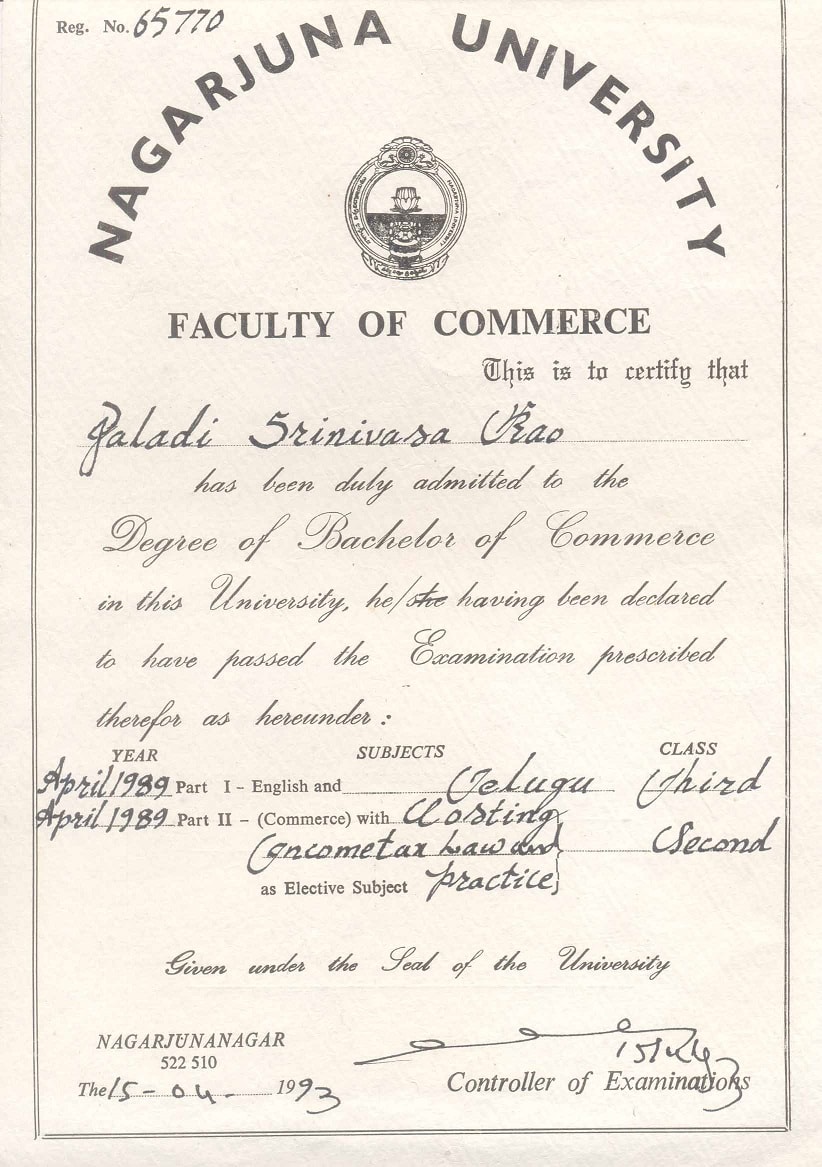 Reg. No. 65770
NAGARJUNA UNIVERSITY
FACULTY OF COMMERCE
This is to certify that
Paladi Srinivasa Rao
has been duly admitted to the
Degree of Bachelor of Commerce
in this University, he/she having been declared
to have passed the Examination prescribed
therefor as hereunder :
YEAR SUBJECTS CLASS
April 1989 Part I - English and Telugu Third
April 1989 Part II - (Commerce) with Costing
Incometax Law and Second
as Elective Subject practice
Given under the Seal of the University
NAGARJUNANAGAR
522 510
The 15-04- 1993
Controller of Examinations